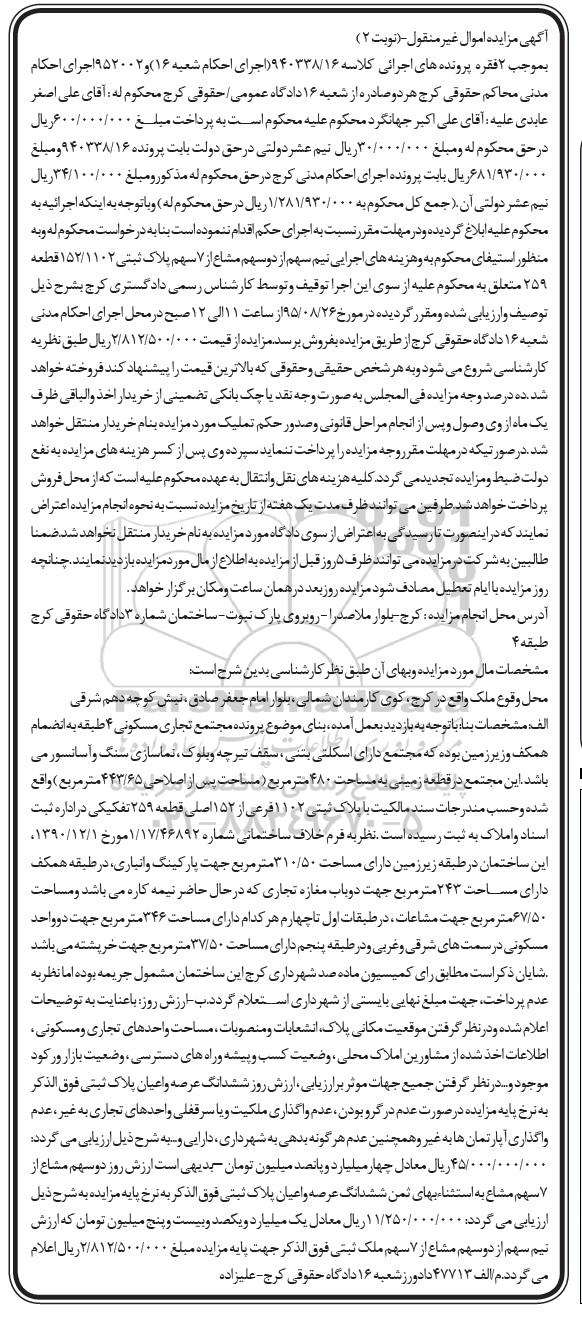 آگهی مزایده اموال غیر منقول-(نوبت ۲)
بموجب ۲فقره پرونده های اجرائی کلاسه ۹۴۰۳۳۸/۱۶(اجرای احکام شعبه ۱۶)و۹۵۲۰۰۲اجرای احکام
مدنی محاکم حقوقی کرج هردوصادره از شعبه ۱۶دادگاه عمومی/حقوقی کرج محکوم له : آقای علی اصغر
عابدی علیه : آقای علی اکبر جهانگرد محکوم علیه محکوم است به پرداخت مبلغ ۶۰۰/۰۰۰/۰۰۰ریال
درحق محکوم له ومبلغ ۳۰/۰۰۰/۰۰۰ریال نیم عشردولتی درحق دولت بابت پرونده ۹۴۰۳۳۸/۱۶ومبلغ
۶۸۱/۹۳۰/۰۰۰ریال بابت پرونده اجرای احکام مدنی کرج درحق محکوم له مذکورومبلغ ۳۴/۱۰۰/۰۰۰ریال
نیم عشر دولتی آن.(جمع کل محکوم به ۱/۲۸۱/۹۳۰/۰۰۰ریال درحق محکوم له)وباتوجه به اینکه اجرائیه به
محکوم علیه ابلاغ گردیده ودرمهلت مقررنسبت به اجرای حکم اقدام ننموده است بنا به درخواست محکوم له وبه
منظور استیفای محکوم به وهزینه های اجرایی نیم سهم از دوسهم مشاع از ۷سهم پلاک ثبتی ۱۵۲/۱۱۰۲قطعه
۲۵۹ متعلق به محکوم علیه از سوی این اجرا توقیف وتوسط کارشناس رسمی دادگستری کرج بشرح ذیل
توصیف وارزیابی شده ومقرر گردیده درمورخ۹۵/۰۸/۲۶از ساعت ۱۱الی ۱۲صبح درمحل اجرای احکام مدنی
شعبه ۱۶دادگاه حقوقی کرج از طریق مزایده بفروش برسد.مزایده از قیمت ۲/۸۱۲/۵۰۰/۰۰۰ریال طبق نظریه
کارشناسی شروع می شود وبه هر شخص حقیقی وحقوقی که بالاترین قیمت را پیشنهاد کند فروخته خواهد
شد.ده درصد وجه مزایده فی المجلس به صورت وجه نقد یا چک بانکی تضمینی از خریدار اخذ والباقی ظرف
یک ماه از وی وصول وپس از انجام مراحل قانونی وصدور حکم تملیک مورد مزایده بنام خریدار منتقل خواهد
شد.درصورتیکه درمهلت مقرروجه مزایده را پرداخت ننماید سپرده وی پس از کسر هزینه های مزایده به نفع
دولت ضبط ومزایده تجدیدمی گردد.کلیه هزینه های نقل وانتقال به عهده محکوم علیه است که از محل فروش
پرداخت خواهد شد.طرفین می توانند ظرف مدت یک هفته از تاریخ مزایده نسبت به نحوه انجام مزایده اعتراض
نمایند که دراینصورت تا رسیدگی به اعتراض از سوی دادگاه مورد مزایده به نام خریدار منتقل نخواهد شد.ضمنا
طالبین به شرکت درمزایده می توانند ظرف ۵روز قبل از مزایده به اطلاع از مال موردمزایده بازدید نمایند.چنانچه
روز مزایده با ایام تعطیل مصادف شود مزایده روزبعد درهمان ساعت ومکان برگزار خواهد.
آدرس محل انجام مزایده : کرج-بلوار ملاصدرا-روبروی پارک نبوت-ساختمان شماره ۳دادگاه حقوقی کرج
طبقه ۴
مشخصات مال مورد مزایده وبهای آن طبق نظر کارشناسی بدین شرح است:
محل وقوع ملک واقع در کرج ، کوی کارمندان شمالی ، بلوار امام جعفر صادق ، نبش کوچه دهم شرقی
الف: مشخصات بنا:باتوجه به بازدید بعمل آمده ، بنای موضوع پرونده مجتمع تجاری مسکونی ۴طبقه به انضمام
همکف وزیرزمین بوده که مجتمع دارای اسکلتی بتنی ، سقف تیرچه وبلوک ، نماسازی سنگ وآسانسور می
باشد.این مجتمع درقطعه زمینی به مساحت ۴۸۰مترمربع (مساحت پس از اصلاحی ۴۴۳/۶۵مترمربع)واقع
شده وحسب مندرجات سند مالکیت با پلاک ثبتی ۱۱۰۲فرعی از ۱۵۲اصلی قطعه ۲۵۹تفکیکی دراداره ثبت
اسناد واملاک به ثبت رسیده است .نظربه فرم خلاف ساختمانی شماره ۱/۱۷/۴۶۸۹۲مورخ ۱۳۹۰/۱۲/۱،
این ساختمان درطبقه زیرزمین دارای مساحت ۳۱۰/۵۰مترمربع جهت پارکینگ وانباری، درطبقه همکف
دارای مساحت ۲۴۳مترمربع جهت دوباب مغازه تجاری که درحال حاضر نیمه کاره می باشد ومساحت
۶۷/۵۰مترمربع جهت مشاعات ، درطبقات اول تاچهارم هرکدام دارای مساحت ۳۴۶مترمربع جهت دوواحد
مسکونی درسمت های شرقی وغربی ودرطبقه پنجم دارای مساحت ۳۷/۵۰مترمربع جهت خرپشته می باشد
.شایان ذکراست مطابق رای کمیسیون ماده صد شهرداری کرج این ساختمان مشمول جریمه بوده اما نظربه
عدم پرداخت، جهت مبلغ نهایی بایستی از شهرداری استعلام گردد.ب-ارزش روز: باعنایت به توضیحات
اعلام شده ودرنظر گرفتن موقعیت مکانی پلاک، انشعابات ومنصوبات ، مساحت واحدهای تجاری ومسکونی ،
اطلاعات اخذ شده از مشاورین املاک محلی ، وضعیت کسب وپیشه وراه های دسترسی ، وضعیت بازار ورکود
موجود و...درنظر گرفتن جمیع جهات موثر برارزیابی ، ارزش روز ششدانگ عرصه واعیان پلاک ثبتی فوق الذکر
به نرخ پایه مزایده درصورت عدم در گرو بودن ، عدم واگذاری ملکیت ویا سرقفلی واحدهای تجاری به غیر ، عدم
واگذاری آپارتمان ها به غیر وهمچنین عدم هرگونه بدهی به شهرداری ، دارایی و...به شرح ذیل ارزیابی می گردد:
۴۵/۰۰۰/۰۰۰/۰۰۰ریال معادل چهارمیلیارد وپانصد میلیون تومان –بدیهی است ارزش روز دوسهم مشاع از
۷سهم مشاع به استثناءبهای ثمن ششدانگ عرصه واعیان پلاک ثبتی فوق الذکر به نرخ پایه مزایده به شرح ذیل
ارزیابی می گردد: ۱۱/۲۵۰/۰۰۰/۰۰۰ریال معادل یک میلیارد ویکصد وبیست وپنج میلیون تومان که ارزش
نیم سهم از دوسهم مشاع از ۷سهم ملک ثبتی فوق الذکر جهت پایه مزایده مبلغ ۲/۸۱۲/۵۰۰/۰۰۰ریال اعلام
می گردد.م/الف ۴۷۷۱۳دادورز شعبه ۱۶دادگاه حقوقی کرج-علیزاده
ParsNamadData
۰۲۱-۸۸۳۴۹۶۷۰-۵